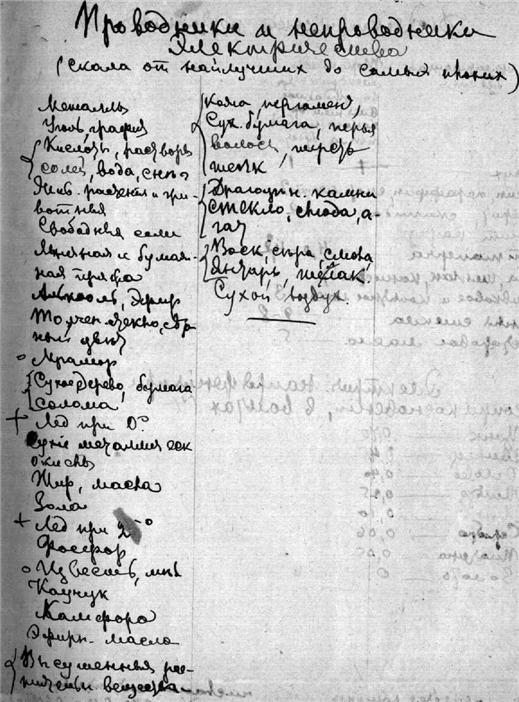 Проводники и непроводники
электричества
(скала от наилучших до самых плохих)
Металлы
Уголь, графит
Кислоты, растворы
солей, вода, снег
Жив. растения и жи-
вотныя
Свободныя соли
Льняная и бумаж-
ная пряжа
Алкооль, эфир
Толчен. стекло, сер-
ный цвет
Мрамор
Сухое дерево, бумага
солома
+ Лед при 0°
Сухие металлическ
окислы
Жир, масла
Зола
+ Лед при 25°
Фосфор
Известь, мел
Каучук
Камфора
Эфирн. масла
Высушенныя рас-
вещества
кожа, пергамент,
Сух. бумага, перья
волосы, шерсть
шелк
Драгоценн. камни
стекло, слюда, а-
гат
Воск, сера, смола
Янтарь, шеллак.
Сухой воздух.